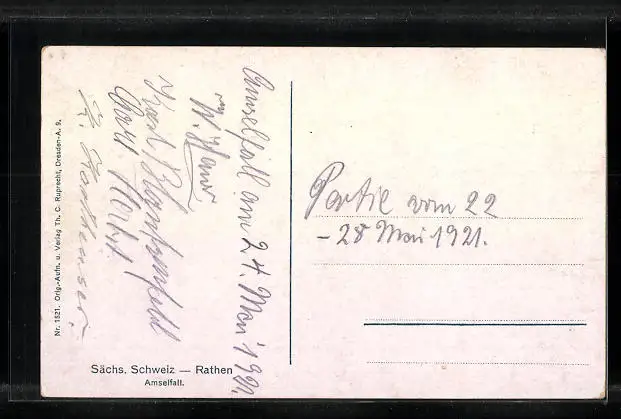 Amselfall am 24. Mai 1921
W. Haus
Karl
Carl Herbst.
Partie vom 22
- 28 Mai 1921.
Sächs. Schweiz — Rathen
Amselfall.
Nr. 1521. Orig.-Aufn. u. Verlag Th. C. Ruprecht, Dresden-A. 9.